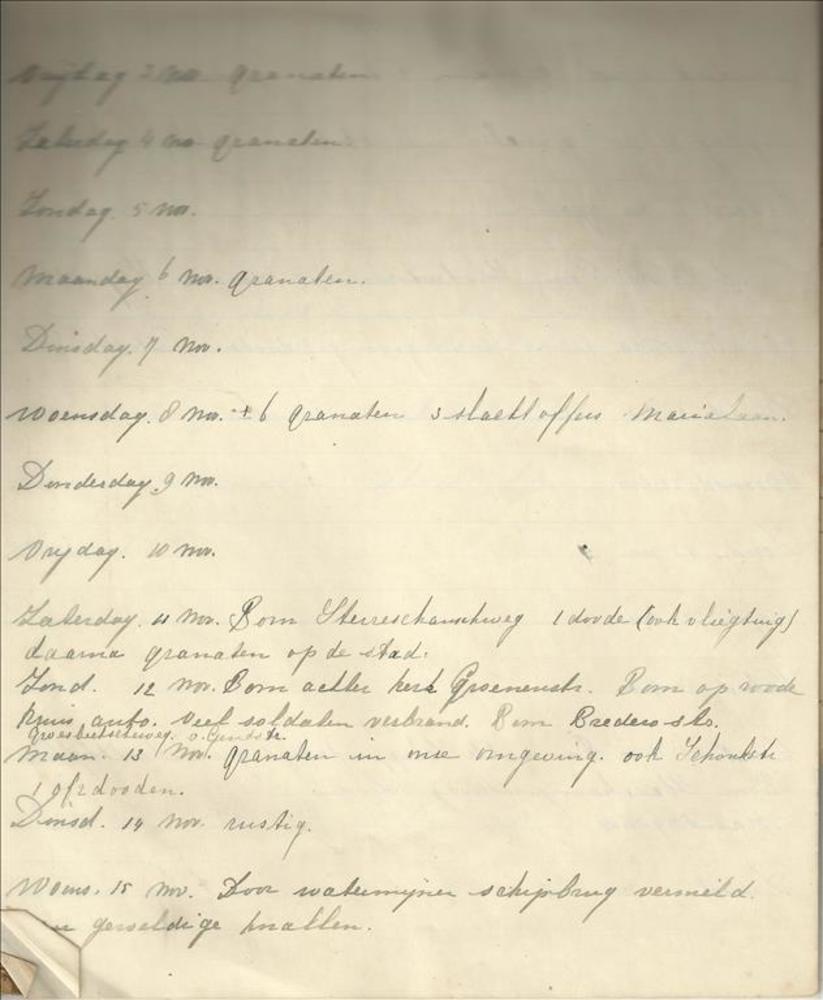 Vrijdag 3 Nov. granaten
Zaterdag 4 Nov. granaten
Zondag. 5 Nov.
Maandag 6 Nov. granaten.
Dinsdag. 7 Nov.
Woensdag. 8 Nov. ± 6 granaten 3 slachtoffers Marialaan.
Donderdag. 9 Nov.
Vrydag. 10 Nov.
Zaterdag. 11 Nov. Bom Sterreschansweg 1 doode (ook vliegtuig)
daarna granaten op de stad.
Zond. 12 Nov. Bom achter kerk Groenenstr. Bom op roode
kruis auto. Veel soldaten verbrand. Bom Brederostr.
Groesbeekscheweg.
Maan. 13 Nov. granaten in onze omgeving. ook
1 of 2 dooden.
Dinsd. 14 Nov. rustig.
Woens. 15 Nov. Door watermijnen schipbrug vernield.
geweldige knallen.